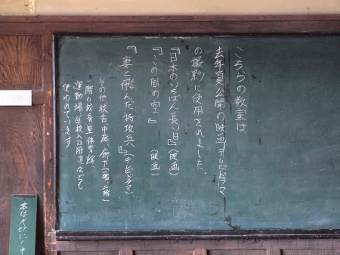 こちらの教室は、
去年夏公開の映画、TVドラマ
の撮影に使用されました。
『日本のいちばん長い日』(映画)
『この国の空』(映画)
『妻と飛んだ特攻兵』(テレビドラマ)
その他校舎中庭、廊下(
階の校長室、体育館、
運動場、学校入口附近なども
使われています。